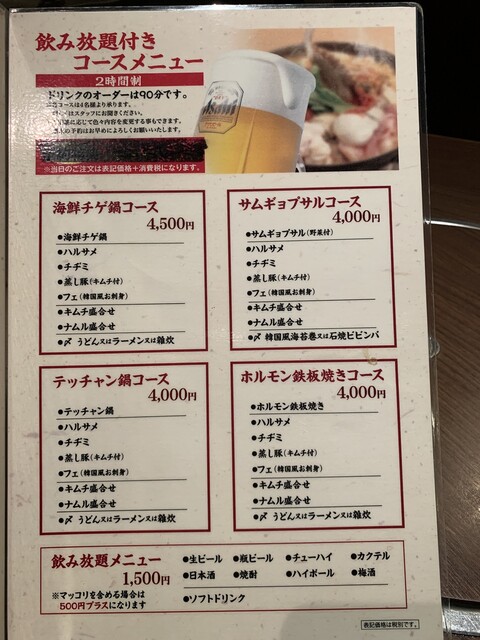 飲み放題付き
コースメニュー
2時間制
ドリンクのオーダーは90分です。
コースは4名様より承ります。
はスタッフにお聞きください。
に応じて色々内容を変更する事もできます。
の予約はお早めによろしくお願いいたします。
※当日のご注文は表記価格+消費税になります。
Asahi
海鮮チゲ鍋コース
4,500円
●海鮮チゲ鍋
●ハルサメ
●チヂミ
●蒸し豚(キムチ付)
●フェ(韓国風お刺身)
●キムチ盛合せ
●ナムル盛合せ
●〆 うどん又はラーメン又は雑炊
サムギョプサルコース
4,000円
●サムギョプサル(野菜付)
●ハルサメ
●チヂミ
●蒸し豚(キムチ付)
●フェ(韓国風お刺身)
●キムチ盛合せ
●ナムル盛合せ
●〆 韓国風海苔巻又は石焼ビビンバ
テッチャン鍋コース
4,000円
●テッチャン鍋
●ハルサメ
●チヂミ
●蒸し豚(キムチ付)
●フェ(韓国風お刺身)
●キムチ盛合せ
●ナムル盛合せ
●〆 うどん又はラーメン又は雑炊
ホルモン鉄板焼きコース
4,000円
●ホルモン鉄板焼き
●ハルサメ
●チヂミ
●蒸し豚(キムチ付)
●フェ(韓国風お刺身)
●キムチ盛合せ
●ナムル盛合せ
●〆 うどん又はラーメン又は雑炊
飲み放題メニュー
1,500円
※マッコリを含める場合は
500円プラスになります
●生ビール ●瓶ビール ●チューハイ ●カクテル
●日本酒 ●焼酎 ●ハイボール ●梅酒
●ソフトドリンク
表記価格は税別です。